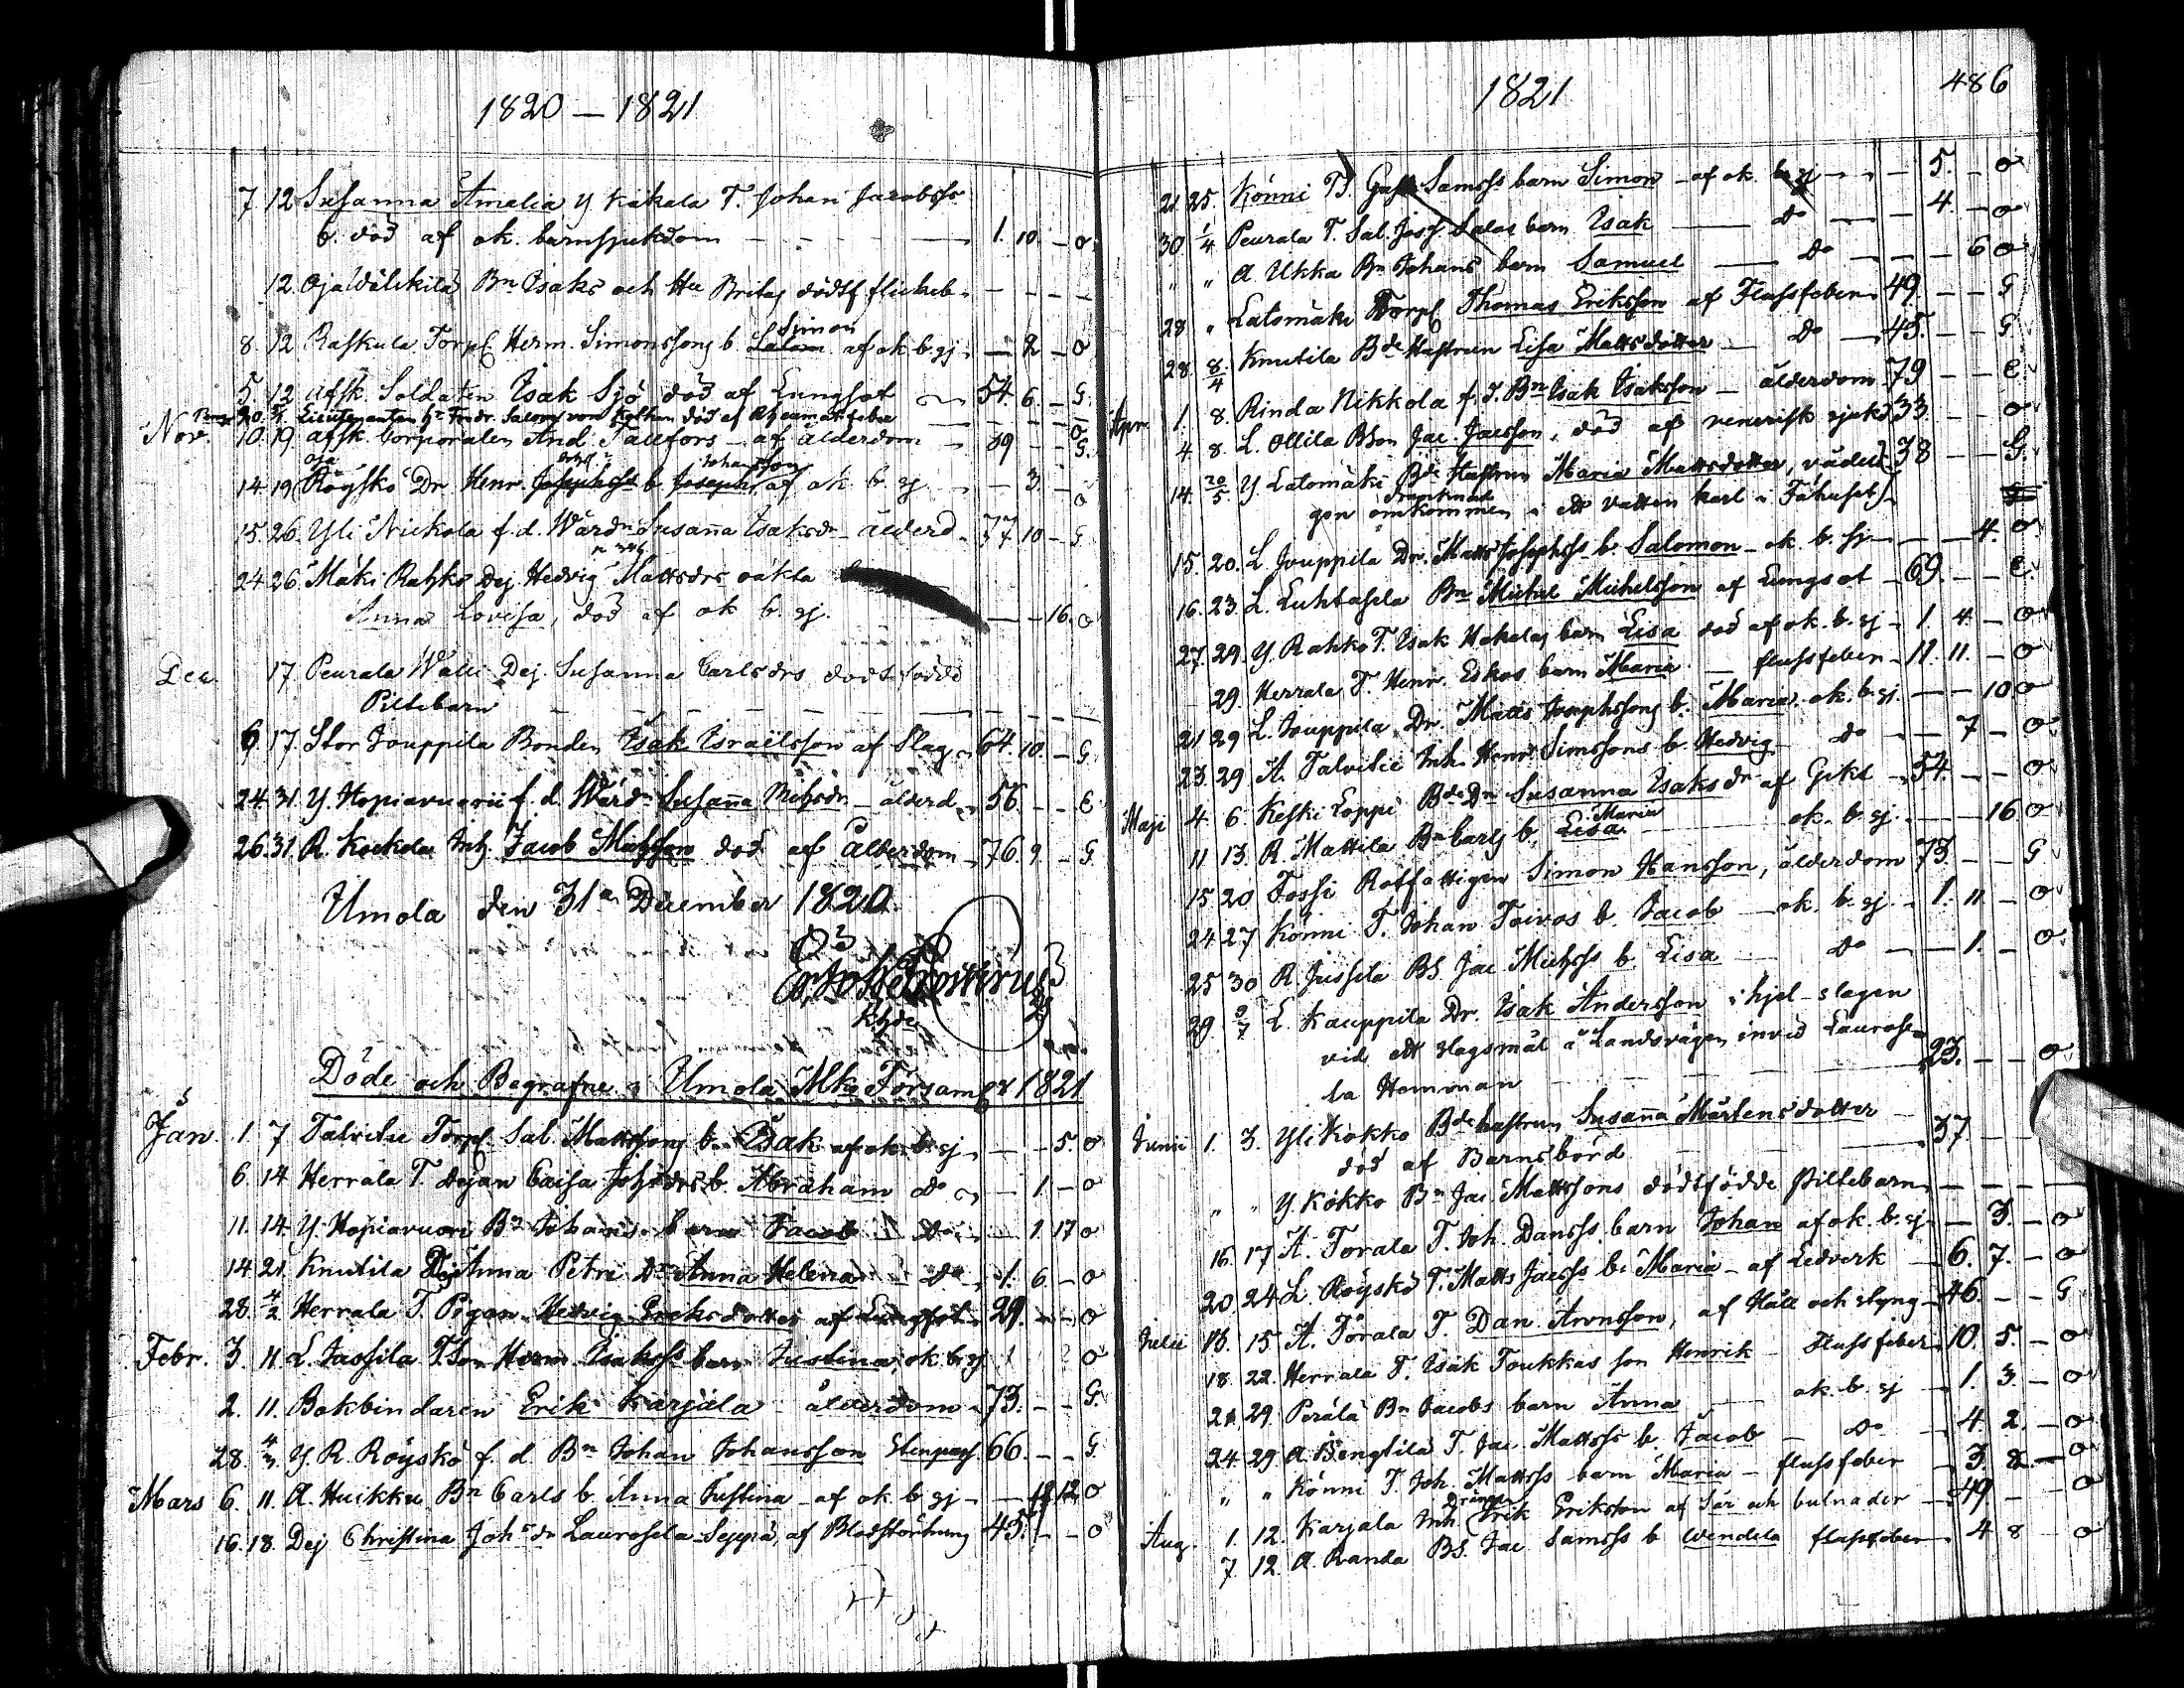 1820 — 1821
7. 12 Susanna Amalia Y. Kakala T. Johan Jacobss.
b. död af ok. barnsjukdom — 1. 10. — O
12. Oja Bn Isaks och Hu Britas dödtf flickeb. — — —
8. 12 Raskula Torp. Herm. Simonssons b. Salom. Simon af ok. b. sj. — 2 — O
5. 12 Afsk. Soldaten Isak Sjö död af Lungsot — 54. 6 — G.
30. Lieutenanten Salomon von död af
Nov. 10. 19. afsk. Corporalen And. Tallfors — af ålderdom — 89 — G.
14. 19. Oja Röyskö Dr. Henr. Josephss b. Joseph Johansson, af ok b. sj — 3. — O
15. 26. Yli Nickola f. d. Wärdn Susanna Isaksdr ålderd. 77 10 — G
24. 26. Mäki Rahko Dej. Hedvig Mattsdrs oäkta
Anna Lovisa, död af ok b. sj. — 16. O
Dec. 17. Peurala Dej. Susanna Carlsdrs dödtfödde
Piltebarn — — —
6. 17. Stor Jouppila Bonden Isak Israelsson af Slag — 64. 10. — G
24. 31. Y. Hopiavuori f. d. Wärdn Susanna Michsdr — ålderd. 56. — — E
26. 31. R. Kockola Inh. Jacob Michsson död af ålderdom — 76. 9 — G.
Umola den 31a December 1820
Döde och Begrafne i Umola Mko Församl. 1821
Jan. 1. 7 Talvitie Torp. Sal. Mattssons b. Isak af ok. b. sj — — 5. O
6. 14 Herrala T. Dejan Caisa Johsdrs b. Abraham do — 1. — O
11. 14. Y. Hopiavuori Bn Johans barn Jacob do — 1. 17 O
14. 21. Knutila Dej Anna Petri Dr Anna Helena — do — 1. 6 — O
28. 4/2 Herrala T. Pigan Hedvig Eriksdotter af Lungsot 29. — — O
Febr. 3. 11. L. Jassila T. Son Herm. Isakss barn Justina, ok. b. sj 1 O
2. 11. Bokbindaren Erik Karjala ålderdom 73. — — G.
28. 4/3 Y. R. Röyskö f. d. Bn Johan Johansson Stenpass 66. — — G.
Mars 6. 11. A. Huikku Bn Carls b. Anna Justina — af ok. b. sj — — 12 O
16. 18. Dej Christina Johsdr Laurosela Seppä, af Blodstörtning 45. — — O
1821
486
21. 25. Könni T. Samss barn Simon — af ok. b. sj — — 5. — O
30. 1/4 Peurala T. Sal. Jos. Salos barn Isak — do — 4. — O
" " A. Ukka Bn Johans barn Samuel — do — — 6 O
28 " Latomäki Torp. Thomas Eriksson af Flussfeber 49. — — G
28. 8/4 Knutila Bde Hustrun Lisa Mattsdotter — do — 45. — G
Apr. 1. 8. Rinda Nikkola f. d. Bn Isak Isaksson — ålderdom 79 — — E.
4. 8. L. Ollila BSon Jac. Jacsson, död af venerisk sjukd. 33. — — O
14. 20/5 Y. Latomäki Bde Hustrun Maria Mattsdotter, vådeli- 38 — — G.
gen omkommen drunknad i ett vatten karl i Fähuset
15. 20. L. Jouppila Dr. Matts Josephss b. Salomon — ok. b. sj — — 4. O
16. 23. L. Luhtasela Bn Michel Michelsson af Lungsot — 69. — — E.
27. 29. Y. Rahko T. Isak Hakalas barn Lisa död af ok. b. sj — 1. 4. — O
29. Herrala T. Henr. Eskos barn Maria — flussfeber — 11. 11. — O
21 29 L. Jouppila Dr. Matts Josephssons b. Maria ok. b. sj. — — 10 O
23. 29 A. Talvitie Inh. Henr. Simssons b. Hedvig — do — 7 — O
Maji 4. 6. Keski Loppi Bde Dn Susanna Isaksdr af Gikt — 54. — — O
11 13. R. Mattila Bn Carls b. Lisa Maria — ok. b. sj. — — 16 O
15 20 Fossi Rotfattigen Simon Hansson, ålderdom 73. — — G
24 27 Könni T. Johan Toivos b. Jacob — ok. b. sj. — 1. 11 — O
25 30 R. Jussila BS Jac Michss b. Lisa — do — 1. — O
29. L. Kauppila Dr. Isak Andersson ihjel-slagen
vid ett slagsmål å Landsvägen invid Laurose-
la Hemman — 23. — — O
Junii 1. 3. Yli Kokko Bde hustrun Susanna Mårtensdotter
död af Barnsbörd — 37 — —
" " Y. Kokko Bn Jac. Mattssons dödtfödde Piltebarn — — —
16. 17 A. Torala T. Joh. Danss. barn Johan af ok. b. sj — 3. — O
20 24 L. Röyskö T. Matts Jacss b. Maria — af Ledverk — 6. 7. — O
Julii 13. 15 A. Törala T. Dan. Aronsson, af Håll och styng — 46. — — G
18. 22. Herrala T. Isak Toukkas son Henrik — Flussfeber — 10. 5. — O
21 29. Perälä Bn Jacobs barn Anna — ok. b. sj — 1. 3. — O
24. 29. A. Bengtila T. Jac. Mattss b. Jacob — do — 4. 2. — O
" " Könni T. Joh. Mattss barn Maria — flussfeber — 3. 8. — O
Aug. 1. 12. Karjala Inh. Drängen Erik Erikson af Sår och bulnader — 49 — — O
7. 12. A. Randa BS. Jac Samss b. Wendela flussfeber — 4 8 — O